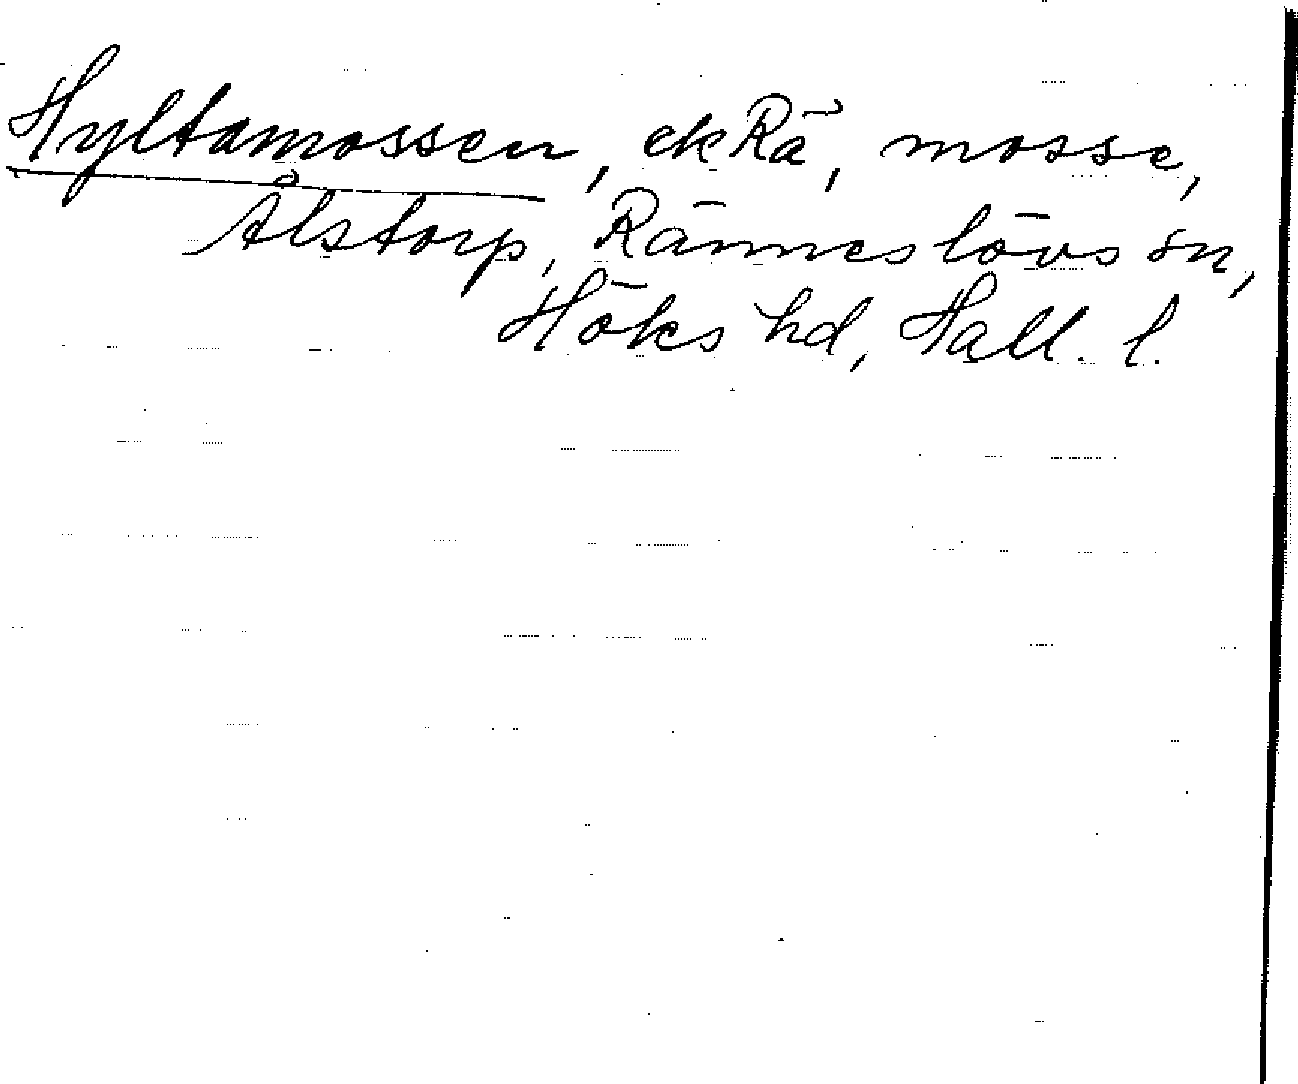 Hyltamossen, ekRä, mosse,
Ålstorp, Ränneslövs sn,
Höks hd, Hall. l.